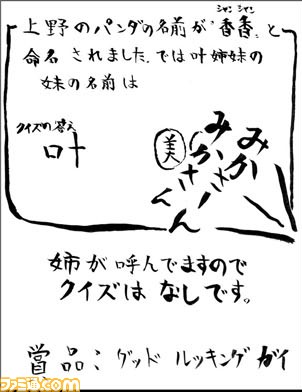 上野のパンダの名前が"香香"と
シャンシャン
命名されました。では叶姉妹の
妹の名前は
クイズの答え
叶
美
みか
みかさーん
姉が呼んでますので
クイズはなしです。
賞品:グッドルッキングガイ
ファミ通.com